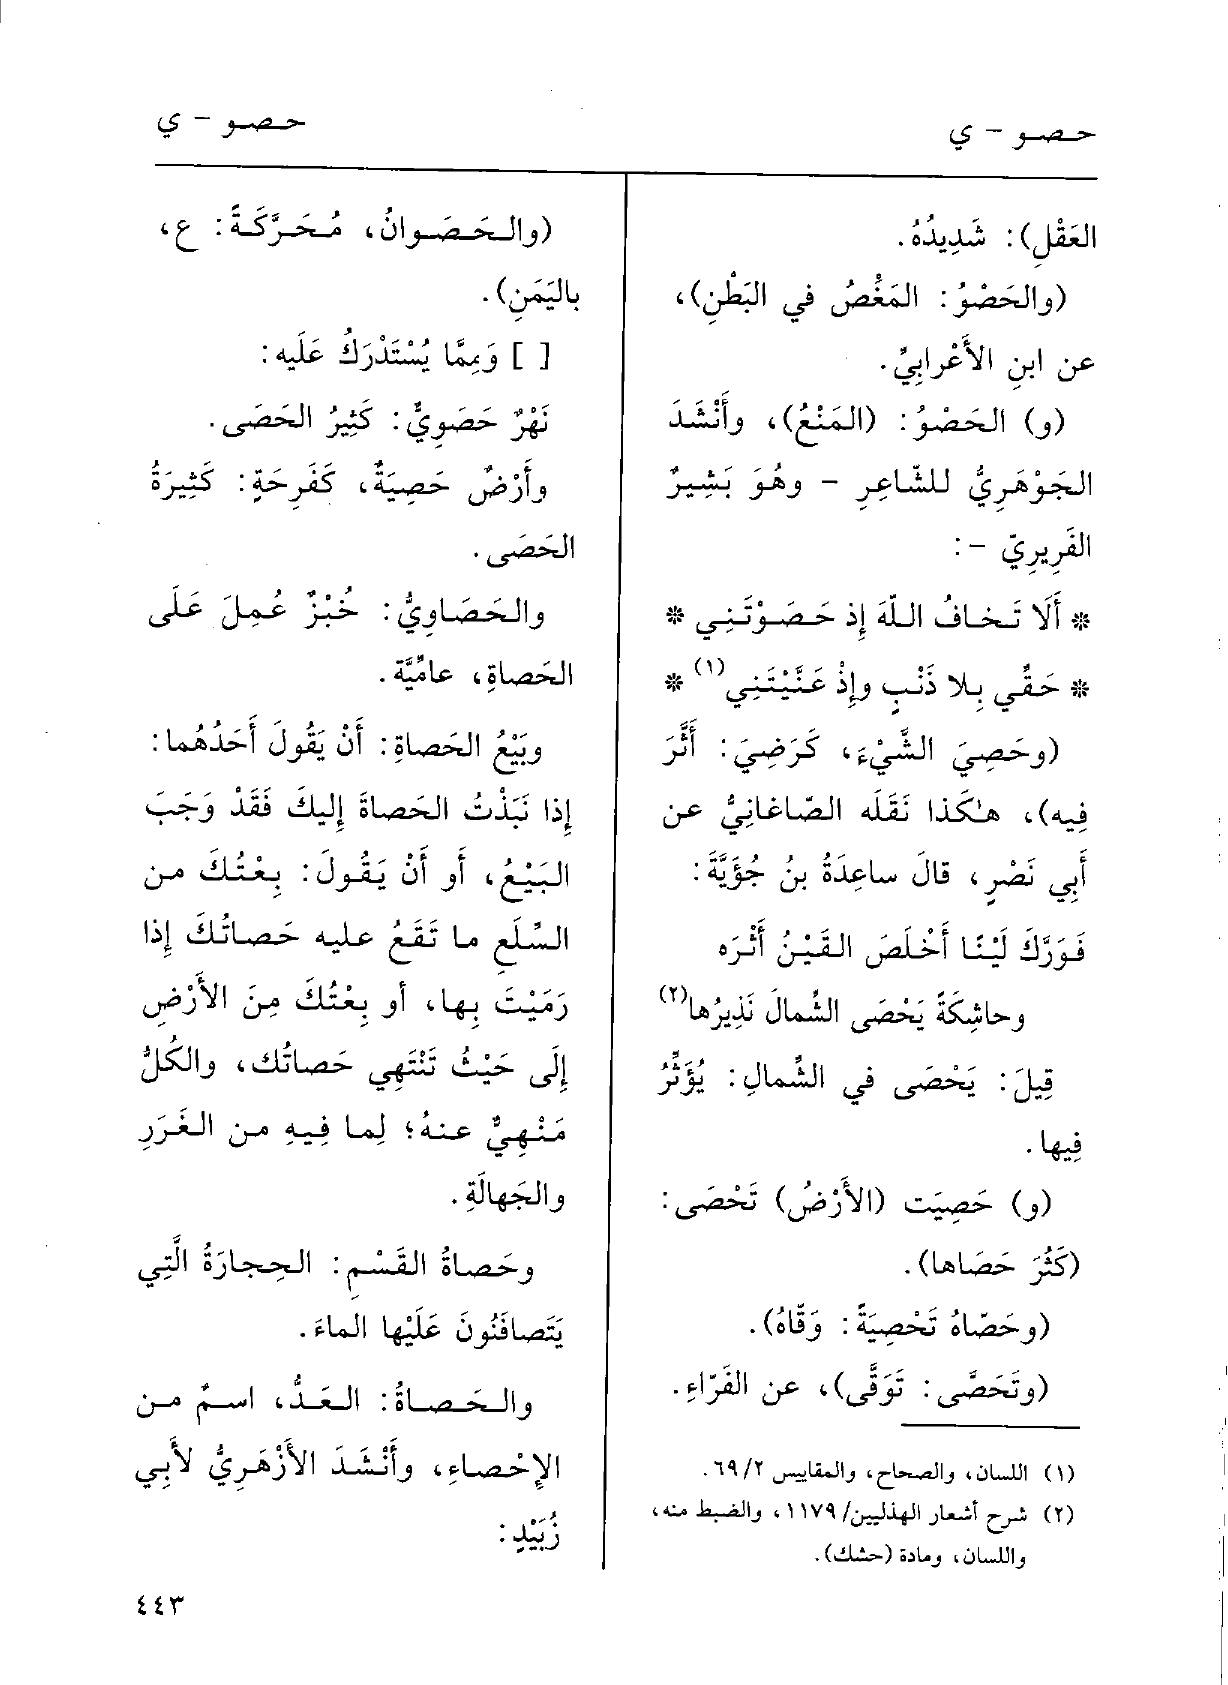 حصو - ي
حصو - ي
العَقْلِ): شَدِيدُهُ.
(والحَصْوُ: المَغْصُ في البَطْنِ)،
عن ابنِ الأَعْرابِيِّ.
(و) الحَصْوُ: (المَنْعُ)، وأَنْشَدَ
الجَوْهَرِيُّ للشّاعِرِ - وهُوَ بَشِيرٌ
الفَرِيرِيّ -:
* أَلَا تَخافُ اللّهَ إِذ حَصَوْتَنِي *
* حَقِّي بِلا ذَنْبٍ وإِذْ عَنَّيْتَنِي(١) *
(وحَصِيَ الشَّيْءَ، كَرَضِيَ: أَثَّرَ
فِيه)، هٰكَذا نَقَلَه الصّاغانِيُّ عن
أَبِي نَصْرٍ، قالَ ساعِدَةُ بنُ جُؤَيَّةَ:
فَوَرَّكَ لَيْنًا أَخْلَصَ القَيْنُ أَثْرَه
وحاشِكَةً يَحْصَى الشِّمالَ نَذِيرُها(٢)
قِيلَ: يَحْصَى في الشِّمالِ: يُؤَثِّرُ
فِيها.
(و) حَصِيَت (الأَرْضُ) تَحْصَى:
(كَثُرَ حَصَاها).
(وحَصّاهُ تَحْصِيَةً: وَقّاهُ).
(وتَحَصَّى: تَوَقَّى)، عن الفَرّاءِ.
(١) اللسان، والصحاح، والمقاييس ٦٩/٢.
(٢) شرح أشعار الهذليين/١١٧٩، والضبط منه،
واللسان، ومادة (حشك).
(والحَصَوانُ، مُحَرَّكَةً: ع،
باليَمَنِ).
[ ] وَمِمَّا يُسْتَدْرَكُ عَلَيه:
نَهْرٌ حَصَوِيٌّ: كَثِيرُ الحَصَى.
وأَرْضٌ حَصِيَةٌ، كَفَرِحَةٍ: كَثِيرَةُ
الحَصَى.
والحَصَاوِيُّ: خُبْزٌ عُمِلَ عَلَى
الحَصاةِ، عامِّيَّة.
وبَيْعُ الحَصاةِ: أَنْ يَقُولَ أَحَدُهُما:
إِذا نَبَذْتُ الحَصاةَ إِليكَ فَقَدْ وَجَبَ
البَيْعُ، أو أَنْ يَقُولَ: بِعْتُكَ من
السِّلَعِ ما تَقَعُ عليه حَصاتُكَ إِذا
رَمَيْتَ بِها، أو بِعْتُكَ مِنَ الأَرْضِ
إِلَى حَيْثُ تَنْتَهِي حَصاتُك، والكُلُّ
مَنْهِيٌّ عنهُ؛ لِما فِيهِ من الغَرَرِ
والجَهالَةِ.
وحَصاةُ القَسْمِ: الحِجارَةُ الَّتِي
يَتَصافَنُونَ عَلَيْها الماءَ.
والحَصاةُ: العَدُّ، اسمٌ من
الإِحْصاءِ، وأَنْشَدَ الأَزْهَرِيُّ لأَبِي
زُبَيْدٍ:
٤٤٣